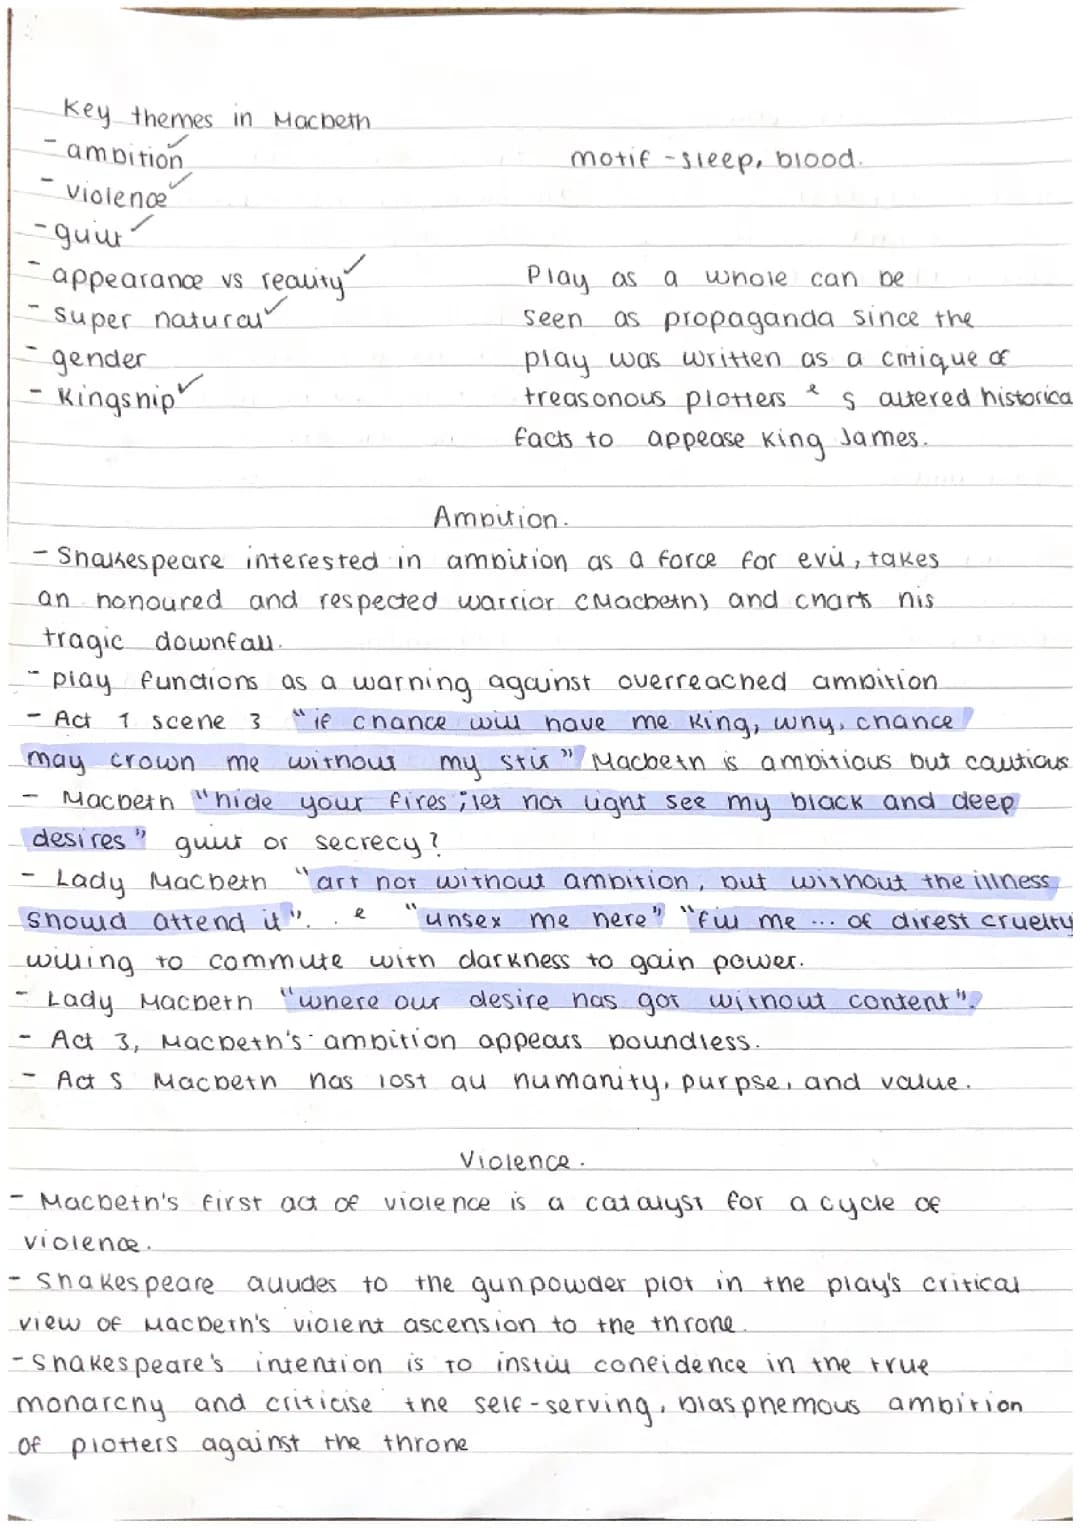 Key themes in Macbeth
- ambition ✓
motif - sleep, blood.
- violence ✓
- guilt ✓
- appearance vs reality ✓
Play as a whole can be
- super natural ✓
seen as propaganda since the
- gender
play was written as a critique of
- Kingship ✓
treasonous plotters & s altered historica
facts to appease King James.
Ambition.
- Shakespeare interested in ambition as a force for evil, takes
an honoured and respected warrior (Macbeth) and charts his
tragic downfall.
- play functions as a warning against overreached ambition
- Act 1 scene 3 "if chance will have me King, why, chance
may crown me without my stir" Macbeth is ambitious but cautious
- Macbeth "hide your fires; let not light see my black and deep
desires" guilt or secrecy?
- Lady Macbeth "art not without ambition, but without the illness
should attend it". . & "unsex me here" "fill me ... of direst cruelty
willing to commute with darkness to gain power.
- Lady Macbeth "where our desire has got without content".
- Act 3, Macbeth's ambition appears boundless.
- Act 5 Macbeth has lost all humanity, purpse, and value.
Violence.
- Macbeth's first act of violence is a catalyst for a cycle of
violence.
- Shakespeare alludes to the gunpowder plot in the play's critical
view of Macbeth's violent ascension to the throne.
- Shakespeare's intention is to instill confidence in the true
monarchy and criticise the self-serving, blasphemous ambition
of plotters against the throne